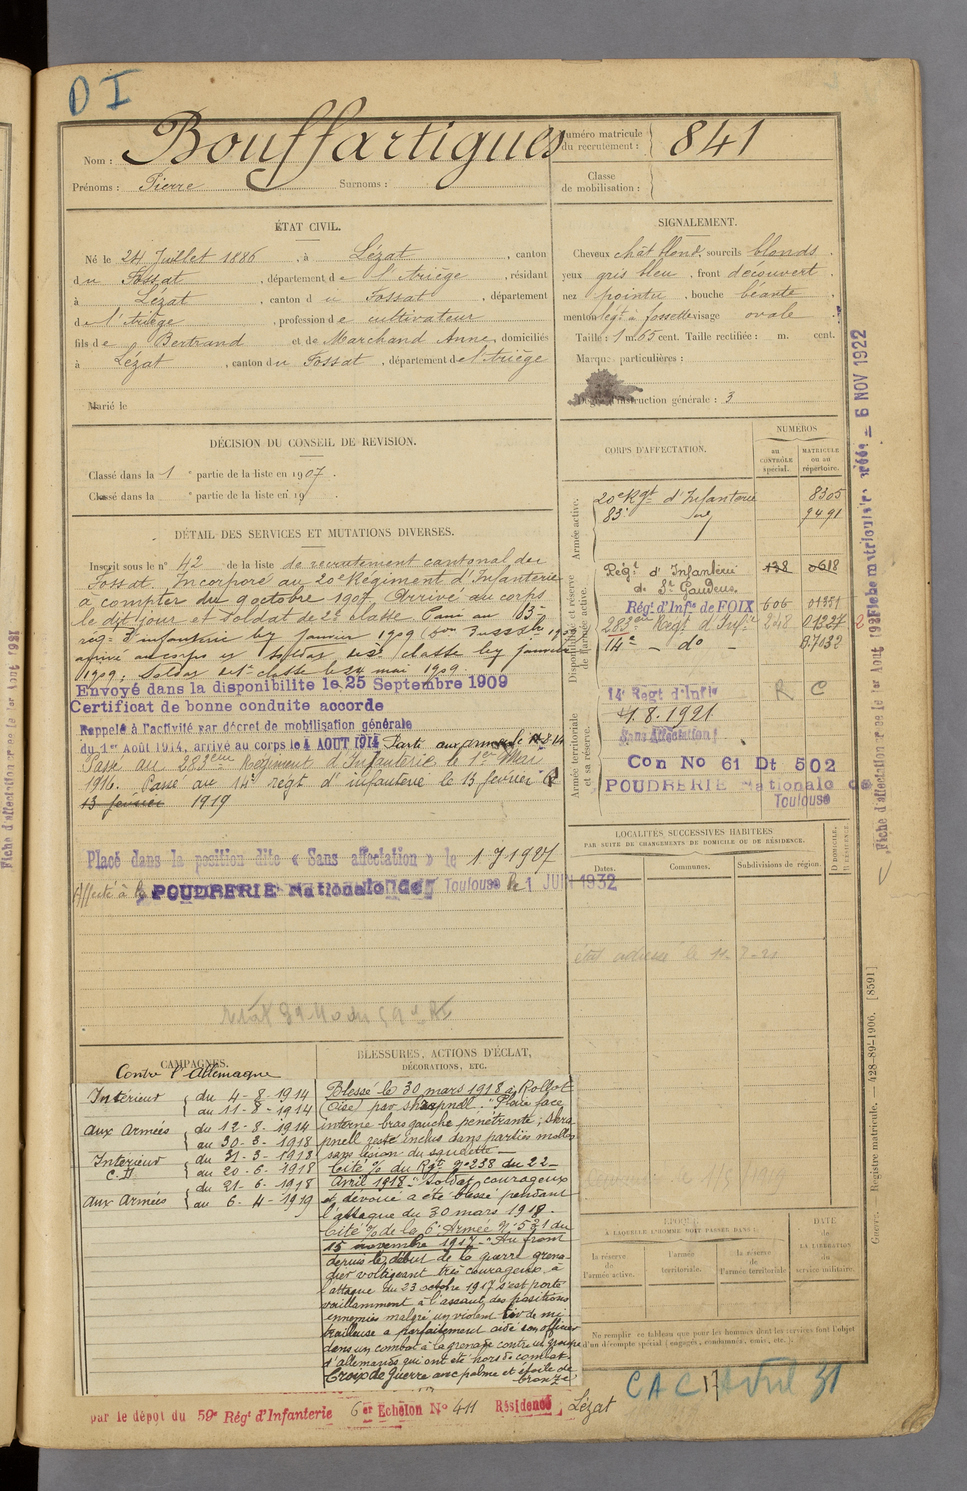 D I
Nom : Bouffartigues
Prénoms : Pierre Surnoms :
Numéro matricule du recrutement : 841
Classe de mobilisation :
ÉTAT CIVIL.
Né le 24 Juillet 1886, à Lézat, canton
du Fossat, département de l'Ariège, résidant
à Lézat, canton du Fossat, département
de l'Ariège, profession de cultivateur
fils de Bertrand et de Marchand Anne, domiciliés
à Lézat, canton du Fossat, département de l'Ariège
Marié le
SIGNALEMENT.
Cheveux chât blond, sourcils blonds,
yeux gris bleu, front découvert,
nez pointu, bouche béante,
menton légt à fossette visage ovale
Taille : 1 m. 65 cent. Taille rectifiée : m. cent.
Marques particulières :
Degré d'instruction générale : 3
DÉCISION DU CONSEIL DE REVISION.
Classé dans la 1 e partie de la liste en 1907.
Classé dans la e partie de la liste en 19
DÉTAIL DES SERVICES ET MUTATIONS DIVERSES.
Inscrit sous le n° 42 de la liste de recrutement cantonal du
Fossat. Incorporé au 20e Régiment d'Infanterie
à compter du 9 octobre 1907. Arrivé au corps
le dit jour et soldat de 2e classe. Passé au 83e
rég. d'infanterie le janvier 1909
arrivé au corps et soldat de 2e classe le janvier
1909; Soldat de 1e classe le 24 mai 1909.
Envoyé dans la disponibilite le 25 Septembre 1909
Certificat de bonne conduite accorde
Rappelé à l'activité par décret de mobilisation générale
du 1er Août 1914, arrivé au corps le 4 AOUT 1914 Parti aux armées le 12-8-14
Passé au 283eme Régiment d'Infanterie le 1er Mai
1916. Passé au 14e régt d'infanterie le 13 février
13 février 1919
Placé dans la position dite « Sans affectation » le 1-7 1927
Affecté à la POUDRERIE Nationale de Toulouse le 1 JUIN 1932
CORPS D'AFFECTATION.
NUMÉROS
au CONTRÔLE spécial.
MATRICULE ou au répertoire.
Armée active.
20e Rgt d'Infanterie 8305
83e 9491
Disponibilité et réserve de l'armée active.
Régt d'Infanterie 138 0618
de St Gaudens
Régt d'Infie de FOIX 606 01351
283eme Régt d'Infie 248 01227
14e - do - B.7032
Armée territoriale et sa réserve.
14e Regt d'Infie R C
1.8.1921
Sans Affectation
Con No 61 Dt 502
POUDRERIE Nationale de
Toulouse
LOCALITÉS SUCCESSIVES HABITÉES
PAR SUITE DE CHANGEMENTS DE DOMICILE OU DE RÉSIDENCE.
Dates. Communes. Subdivisions de région.
D DOMICILE. R RÉSIDENCE.
CAMPAGNES.
Contre l'Allemagne
Intérieur { du 4-8-1914
au 11-8-1914
aux Armées { du 12-8-1914
au 30-3-1918
Intérieur { du 31-3-1918
C.D. au 20-6-1918
aux Armées { du 21-6-1918
au 6-4-1919
BLESSURES, ACTIONS D'ÉCLAT,
DÉCORATIONS, ETC.
Blessé le 30 mars 1918 à Rollot
(Oise) par shrapnell. "Plaie face
interne bras gauche penétrante; shra
pnell resté inclus dans parties molles
sans lésion du squelette
Cité % du Rgt n° 238 du 22
Avril 1918 "Soldat courageux
et dévoué a été blessé pendant
l'attaque du 30 mars 1918.
Cité % de la 6e Armée N° 531 du
15 novembre 1917 - "Au front
depuis le début de la guerre grena
dier voltigeant très courageux à
l'attaque du 23 octobre 1917 s'est porté
vaillamment à l'assaut des positions
ennemies malgré un violent tir de mi
trailleuse a parfaitement aidé son officier
dans un combat à la grenade contre un groupe
d'allemands qui ont été hors de combat.
Croix de Guerre avec palme et étoile de
bronze
ÉPOQUE
À LAQUELLE L'HOMME DOIT PASSER DANS :
la réserve de l'armée active.
l'armée territoriale.
la réserve de l'armée territoriale
DATE de LA LIBÉRATION du service militaire.
Ne remplir ce tableau que pour les hommes dont les services font l'objet
d'un décompte spécial (engagés, condamnés, omis, etc.).
CAC 17 Avril 31
par le dépot du 59e Rég d'Infanterie 6er Echelon No 411 Résidence Lézat
Guerre. — Registre matricule. — 428-89-1906. [8591]
Fiche matricule créée 6 NOV 1922
Fiche d'affectation créée le 1er Aout 1921
Fiche d'affectation